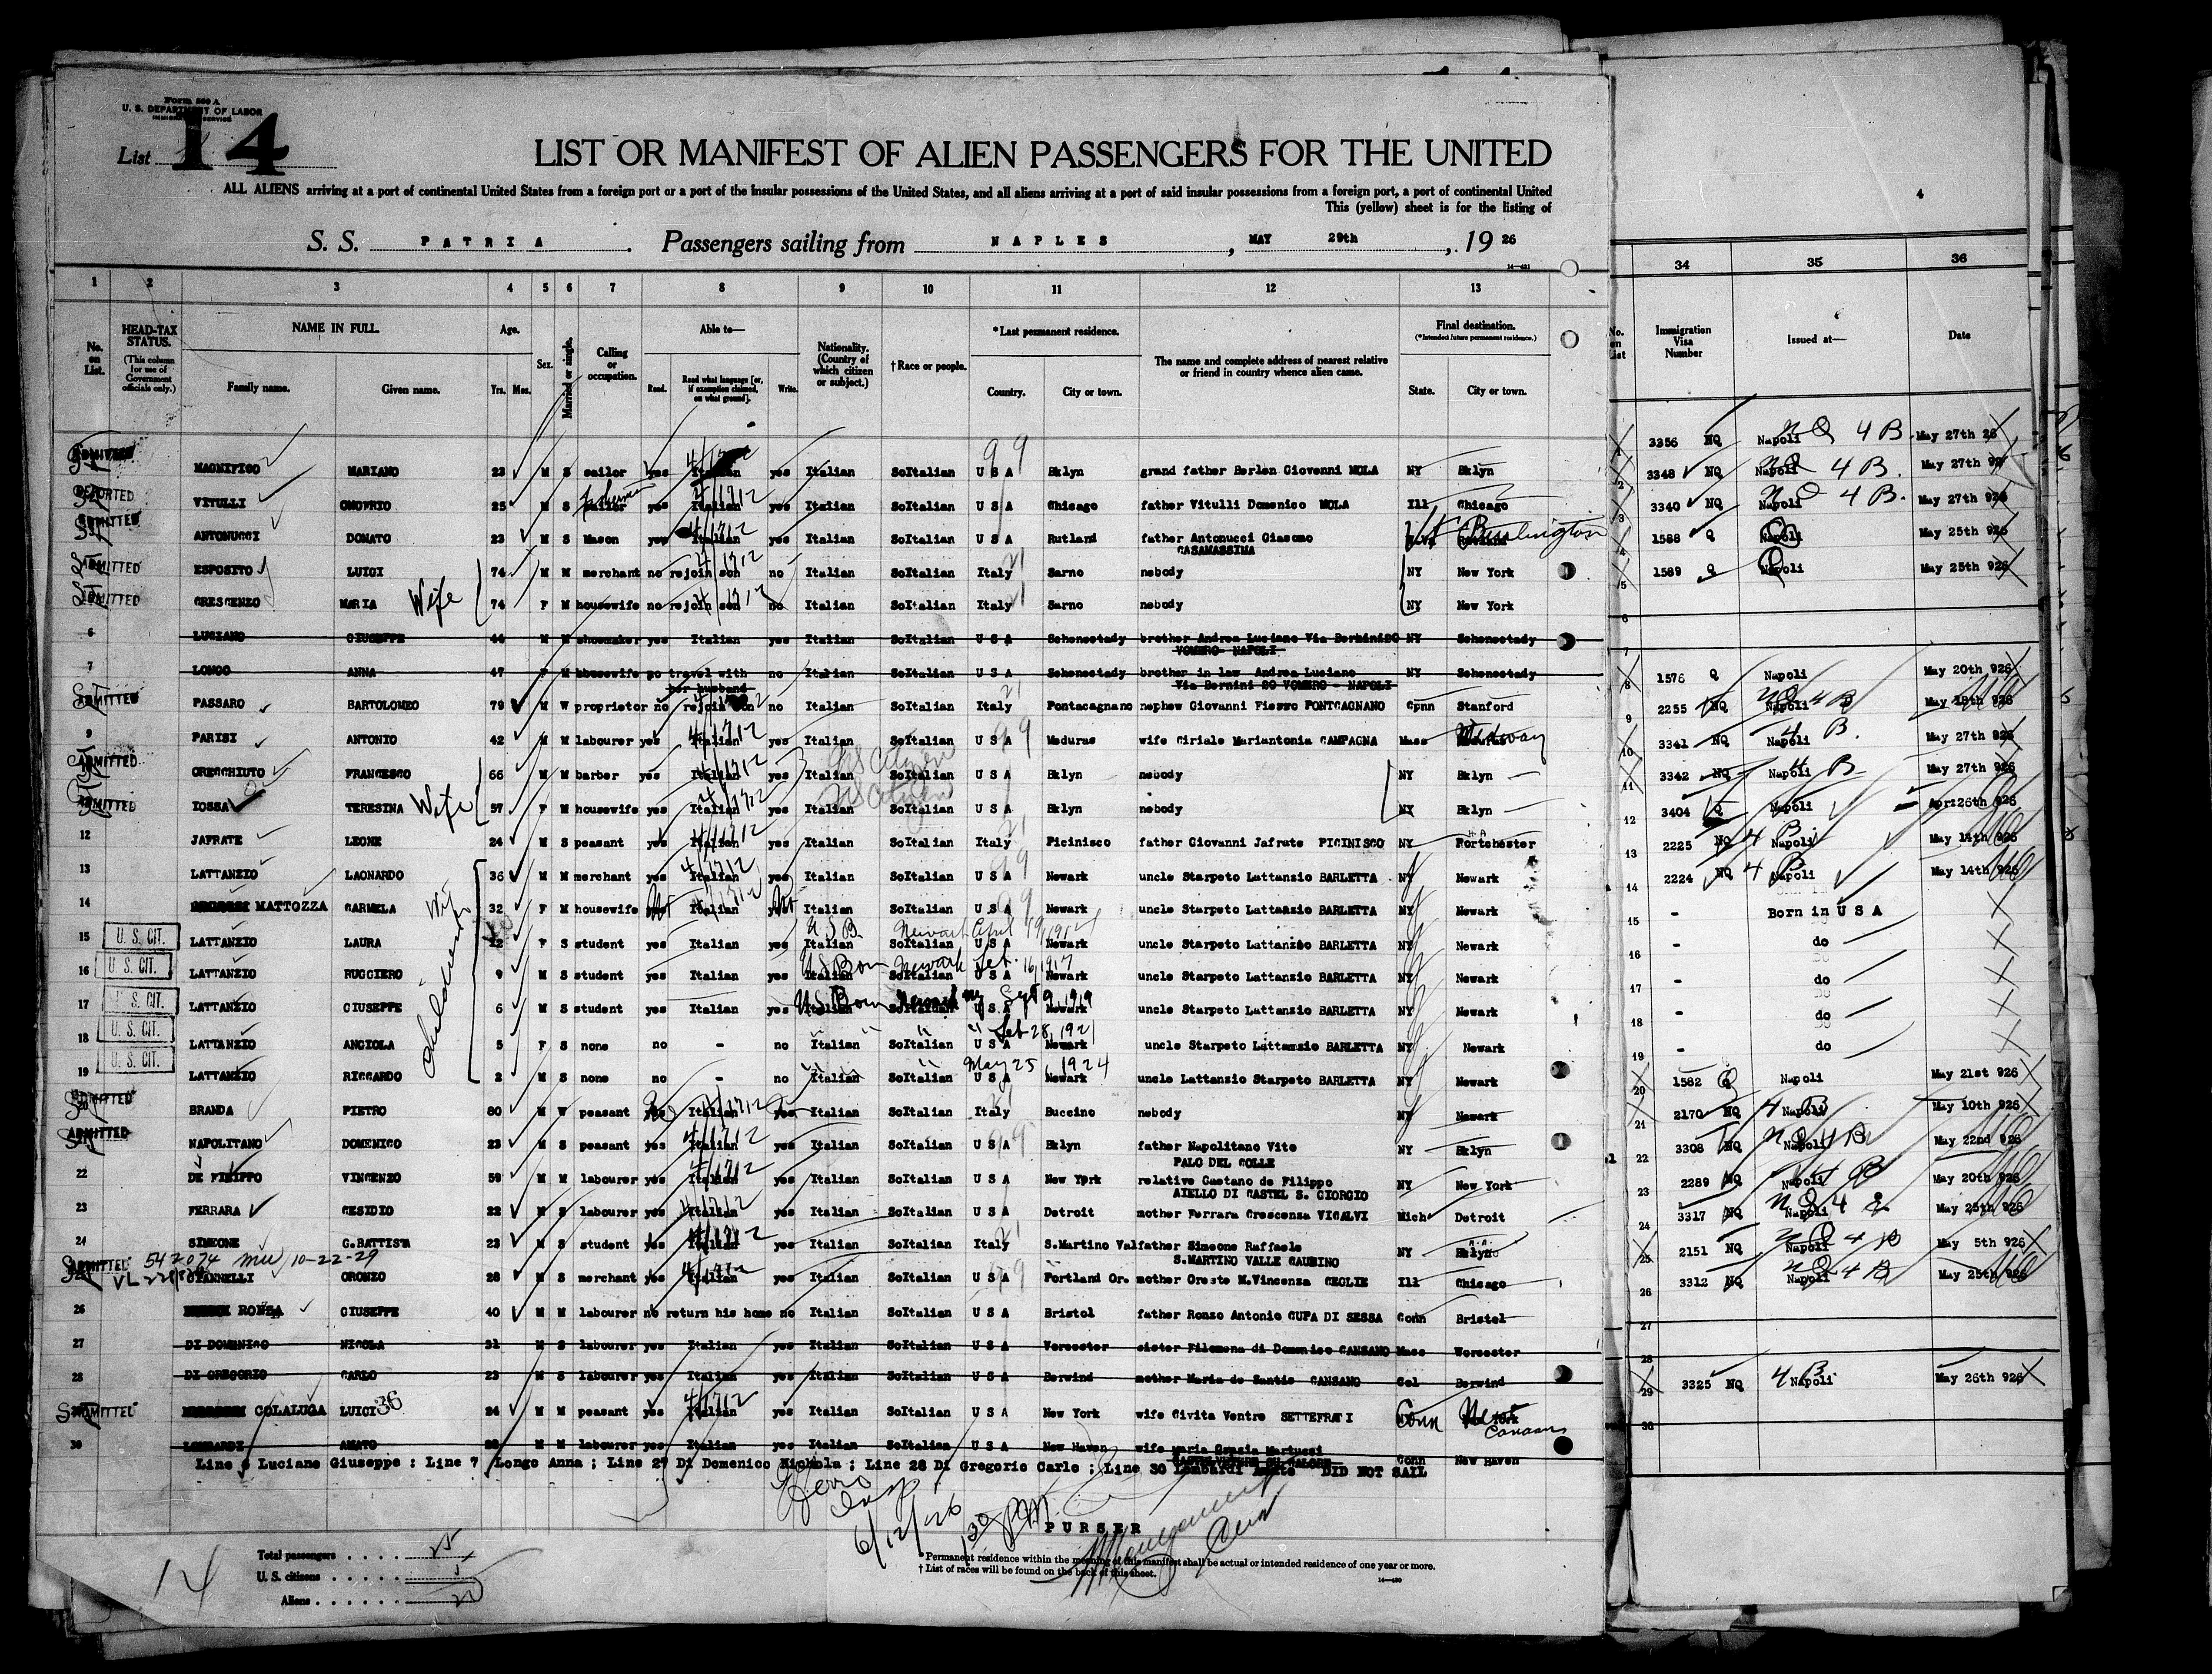 Form 500 A
U. S. DEPARTMENT OF LABOR
IMMIGRATION SERVICE
List 14
LIST OR MANIFEST OF ALIEN PASSENGERS FOR THE UNITED
ALL ALIENS arriving at a port of continental United States from a foreign port or a port of the insular possessions of the United States, and all aliens arriving at a port of said insular possessions from a foreign port, a port of continental United
This (yellow) sheet is for the listing of
4
S. S. PATRIA Passengers sailing from NAPLES, MAY 29th, 1926
1 2 3 4 5 6 7 8 9 10 11 12 13 34 35 36
No. on List. HEAD-TAX STATUS. (This column for use of Government officials only.) NAME IN FULL. Family name. Given name. Age. Yrs. Mos. Sex. Married or single. Calling or occupation. Able to— Read. Read what language [or, if exemption claimed, on what ground]. Write. Nationality. (Country of which citizen or subject.) †Race or people. *Last permanent residence. Country. City or town. The name and complete address of nearest relative or friend in country whence alien came. Final destination. (*Intended future permanent residence.) State. City or town.
No. on List Immigration Visa Number Issued at— Date
ADMITTED MAGNIFICO MARIANO 23 M S sailor yes Italian yes Italian SoItalian U S A Bklyn grand father Berlen Giovenni MOLA NY Bklyn
DEPORTED VITULLI ONOFRIO 25 M S sailor yes Italian yes Italian SoItalian U S A Chicago father Vitulli Domenico MOLA Ill Chicago
ADMITTED ANTONUCCI DONATO 23 M S Mason yes Italian yes Italian SoItalian U S A Rutland father Antonucci Giacomo CASAMASSIMA Burlington
ADMITTED ESPOSITO LUIGI 74 M M merchant no rejoin son no Italian SoItalian Italy Sarno nobody NY New York
ADMITTED CRESCENZO MARIA Wife 74 F M housewife no rejoin son no Italian SoItalian Italy Sarno nobody NY New York
6 LUCIANO GIUSEPPE 44 M M shoemaker yes Italian yes Italian SoItalian U S A Schenestady brother Andrea Luciano Via Bernini20 VOMERO- NAPOLI NY Schenestady
7 LONGO ANNA 47 F M housewife no travel with her husband no Italian SoItalian U S A Schenestady brother in law Andrea Luciano Via Bernini 20 VOMERO - NAPOLI NY Schenestady
ADMITTED PASSARO BARTOLOMEO 79 M W proprietor no rejoin son no Italian SoItalian Italy Pontacagnano nephew Giovanni Fiezzo PONTCAGNANO Conn Stanford
9 PARISI ANTONIO 42 M M labourer yes Italian yes Italian SoItalian U S A Meduras wife Ciriale Mariantonia CAMPAGNA Mass Medway
ADMITTED GRECCHIUTO FRANCESCO 66 M M barber yes Italian yes Italian SoItalian U S A Bklyn nobody NY Bklyn
ADMITTED IOSSA TERESINA Wife 57 F M housewife yes Italian yes Italian SoItalian U S A Bklyn nobody NY Bklyn
12 JAFRATE LEONE 24 M S peasant yes Italian yes Italian SoItalian Italy Picinisco father Giovanni Jafrate PICINISCO NY Portchester
13 LATTANZIO LAONARDO 36 M M merchant yes Italian yes Italian SoItalian U S A Newark uncle Starpeto Lattanzio BARLETTA NY Newark
14 MATTOZZA CARMELA 32 F M housewife Italian Italian SoItalian U S A Newark uncle Starpeto Lattanzio BARLETTA NY Newark
15 U. S. CIT. LATTANZIO LAURA 12 F S student yes Italian yes Italian SoItalian U S A Newark uncle Starpeto Lattanzio BARLETTA NY Newark
16 U. S. CIT. LATTANZIO RUGGIERO 9 M S student yes Italian yes Italian SoItalian U S A Newark uncle Starpeto Lattanzio BARLETTA NY Newark
17 U. S. CIT. LATTANZIO GIUSEPPE 6 M S student yes Italian yes Italian SoItalian U S A Newark uncle Starpeto Lattanzio BARLETTA NY Newark
18 U. S. CIT. LATTANZIO ANGIOLA 5 F S none no - no Italian SoItalian U S A Newark uncle Starpeto Lattanzio BARLETTA NY Newark
19 U. S. CIT. LATTANZIO RICCARDO 2 M S none no - no Italian SoItalian May 25, 1924 U S A Newark uncle Lattanzio Starpeto BARLETTA NY Newark
ADMITTED BRANDA PIETRO 60 M W peasant yes Italian yes Italian SoItalian Italy Buccino nobody NY Newark
ADMITTED NAPOLITANO DOMENICO 23 M S peasant yes Italian yes Italian SoItalian U S A Bklyn father Napolitano Vito PALO DEL COLLE NY Bklyn
22 DE FILIPPO VINCENZO 59 M M labourer yes Italian yes Italian SoItalian U S A New York relative Gaetano de Filippo AIELLO DI CASTEL S. GIORGIO NY New York
23 FERRARA CESIDIO 22 M S labourer yes Italian yes Italian SoItalian U S A Detroit mother Ferrara Crescenza VICALVI Mich Detroit
24 SIMEONE G.BATTISTA 23 M S student yes Italian yes Italian SoItalian Italy S.Martino Val father Simeone Raffaele S.MARTINO VALLE CAUDINO NY Bklyn
ADMITTED 10-22-29 GIANNELLI ORONZO 28 M S merchant yes Italian yes Italian SoItalian U S A Portland Or. mother Oreste M.Vincenza CEGLIE Ill Chicago
26 RONZA GIUSEPPE 40 M M labourer no return his home no Italian SoItalian U S A Bristol father Ronzo Antonio CUPA DI SESSA Conn Bristol
27 DI DOMENICO NICOLA 31 M S labourer yes Italian yes Italian SoItalian U S A Worcester sister Filomena di Domenico CANSANO Mass Worcester
28 DI GREGORIO CARLO 23 M S labourer yes Italian yes Italian SoItalian U S A Berwind mother Maria de Santis CANSANO Col Berwind
ADMITTED COLALUCA LUIGI 36 24 M M peasant yes Italian yes Italian SoItalian U S A New York wife Civita Ventre SETTEFRATI Conn New Canaan
30 LOMBARDI AMATO 28 M M labourer yes Italian yes Italian SoItalian U S A New Haven wife Maria Grazia Martucci Conn New Haven
Line 6 Luciano Giuseppe : Line 7 Longo Anna ; Line 27 Di Domenico Nichola ; Line 28 Di Gregorio Carlo ; Line 30 Lombardi Amato DID NOT SAIL
children
6/12/26 130 PM
PURSER
14
Total passengers . . . . 25
U. S. citizens . . . . . 5
Aliens . . . . . . 20
* Permanent residence within the meaning of this manifest shall be actual or intended residence of one year or more.
† List of races will be found on the back of this sheet.
1 3356 NQ Napoli 4 B May 27th 26
2 3348 NQ Napoli 4 B. May 27th 926
3 3340 NQ Napoli 4 B. May 27th 926
4 1588 Q Napoli May 25th 926
5 1589 Q Napoli May 25th 926
6
7
8 1576 Q Napoli May 20th 926
9 2255 NQ Napoli 4 B May 18th 926
10 3341 NQ Napoli 4 B. May 27th 926
11 3342 NQ Napoli 4 B May 27th 926
12 3404 Q Napoli Apr:26th 926
13 2225 NQ 4 B Napoli May 14th 926
14 2224 NQ 4 B Napoli May 14th 926
15 - Born in U S A
16 - do
17 - do
18 - do
19 - do
20 1582 Q Napoli May 21st 926
21 2170 NQ 4 B Napoli May 10th 926
22 3308 NQ Napoli 4 B May 22nd 926
23 2289 NQ Napoli 4 B May 20th 926
24 3317 NQ Napoli May 25th 926
25 2151 NQ Napoli 4 B May 5th 926
26 3312 NQ Napoli 4 B May 25th 926
27
28
29 3325 NQ 4 B Napoli May 26th 926
30